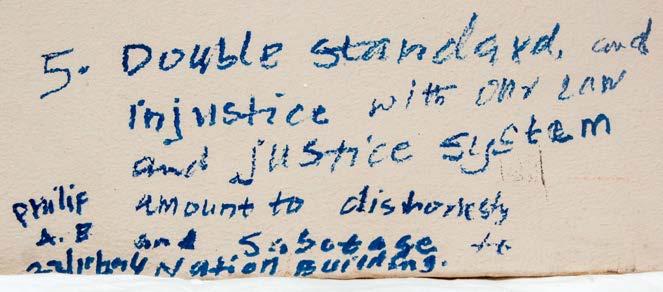 5. Double standard, and
injustice with our law
and justice system
amount to dishonesty
and sabotage to
Nation Building.
Philip
A. B